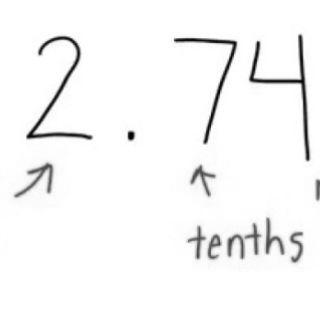 2.74
tenths